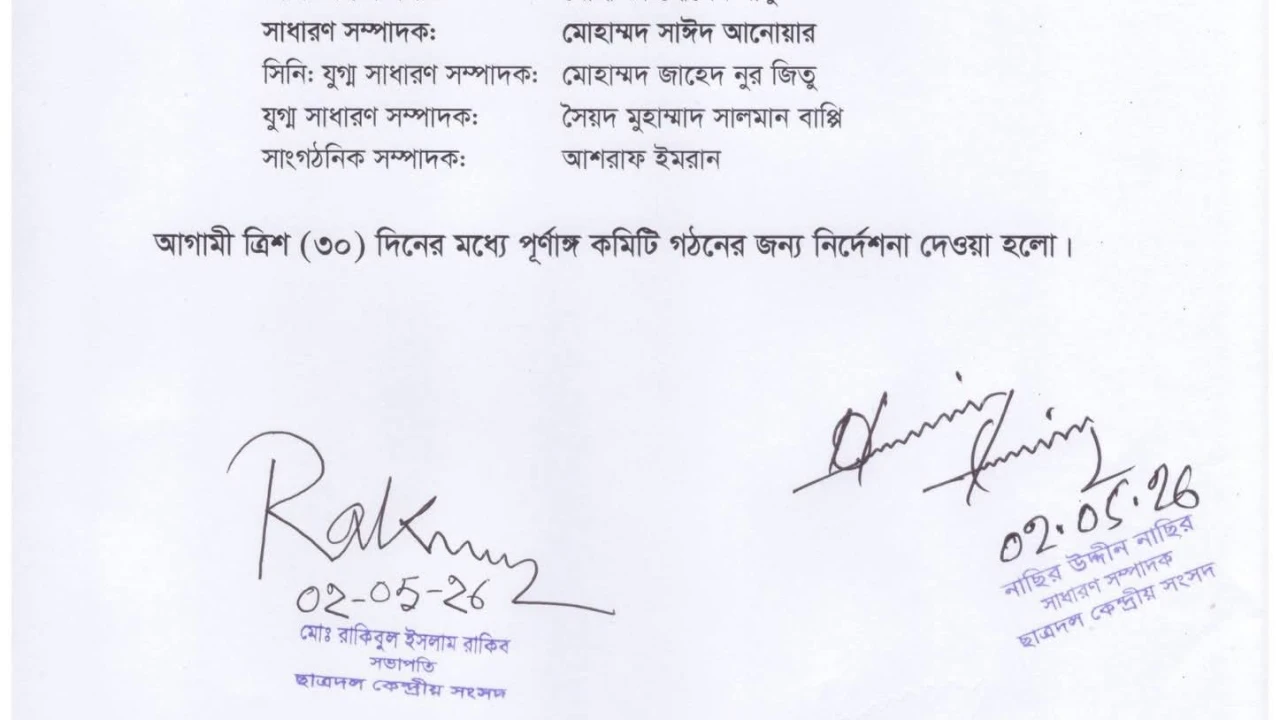 সাধারণ সম্পাদক: মোহাম্মদ সাঈদ আনোয়ার
সিনি: যুগ্ম সাধারণ সম্পাদক: মোহাম্মদ জাহেদ নুর জিতু
যুগ্ম সাধারণ সম্পাদক: সৈয়দ মুহাম্মাদ সালমান বাপ্পি
সাংগঠনিক সম্পাদক: আশরাফ ইমরান
আগামী ত্রিশ (৩০) দিনের মধ্যে পূর্ণাঙ্গ কমিটি গঠনের জন্য নির্দেশনা দেওয়া হলো।
02-05-26
মোঃ রাকিবুল ইসলাম রাকিব
সভাপতি
ছাত্রদল কেন্দ্রীয় সংসদ
02.05.26
নাছির উদ্দীন নাছির
সাধারণ সম্পাদক
ছাত্রদল কেন্দ্রীয় সংসদ